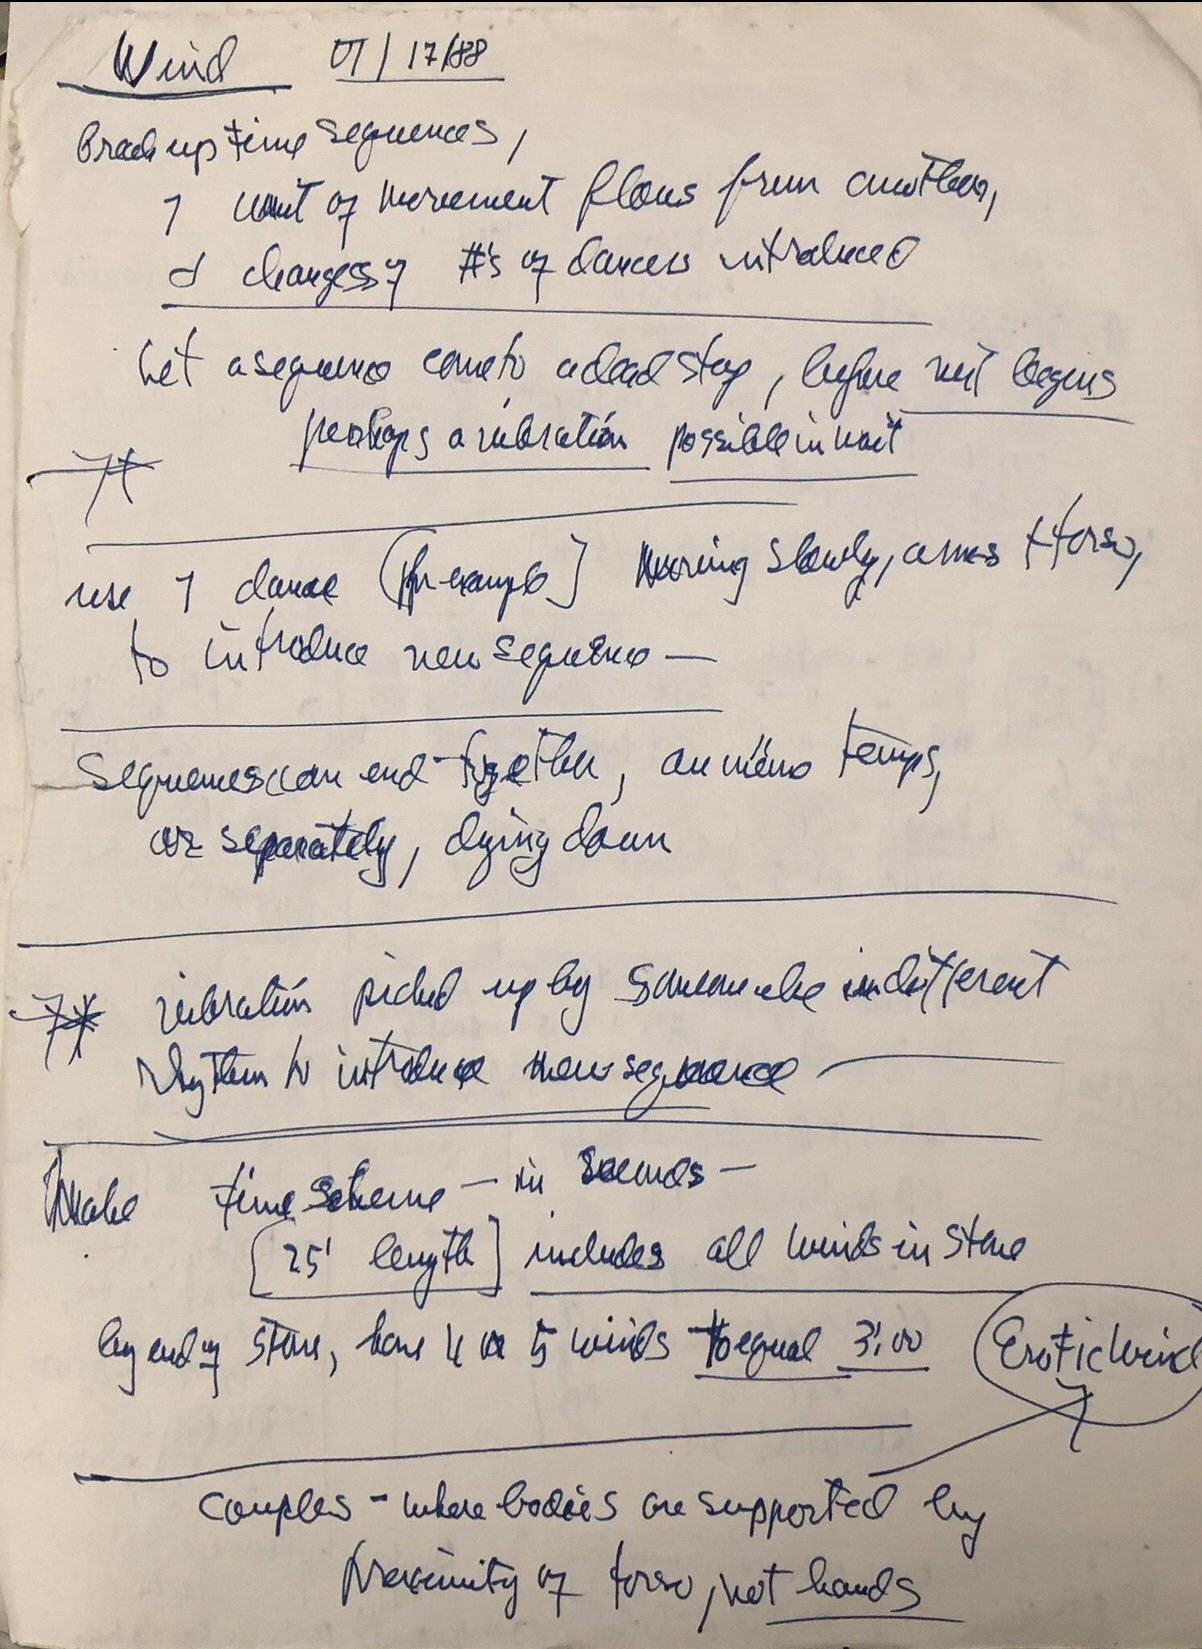 Wind 01/17/88
Break up time sequences,
1 unit of movement flows from another,
& changes of #'s of dancers introduced
Let a sequence come to a dead stop, before next begins
perhaps a vibration possible in wait
use 1 dancer [for example] moving slowly, arms + torso,
to introduce new sequence —
Sequences can end together, au même temps,
or separately, dying down
** vibration picked up by someone else in different
rhythm to introduce new sequence —
Make time scheme — in seconds —
[25' length] includes all winds in stone
by end of stone, have 4 or 5 winds to equal 3:00
Erotic Wind
couples - where bodies are supported by
proximity of torso, not hands